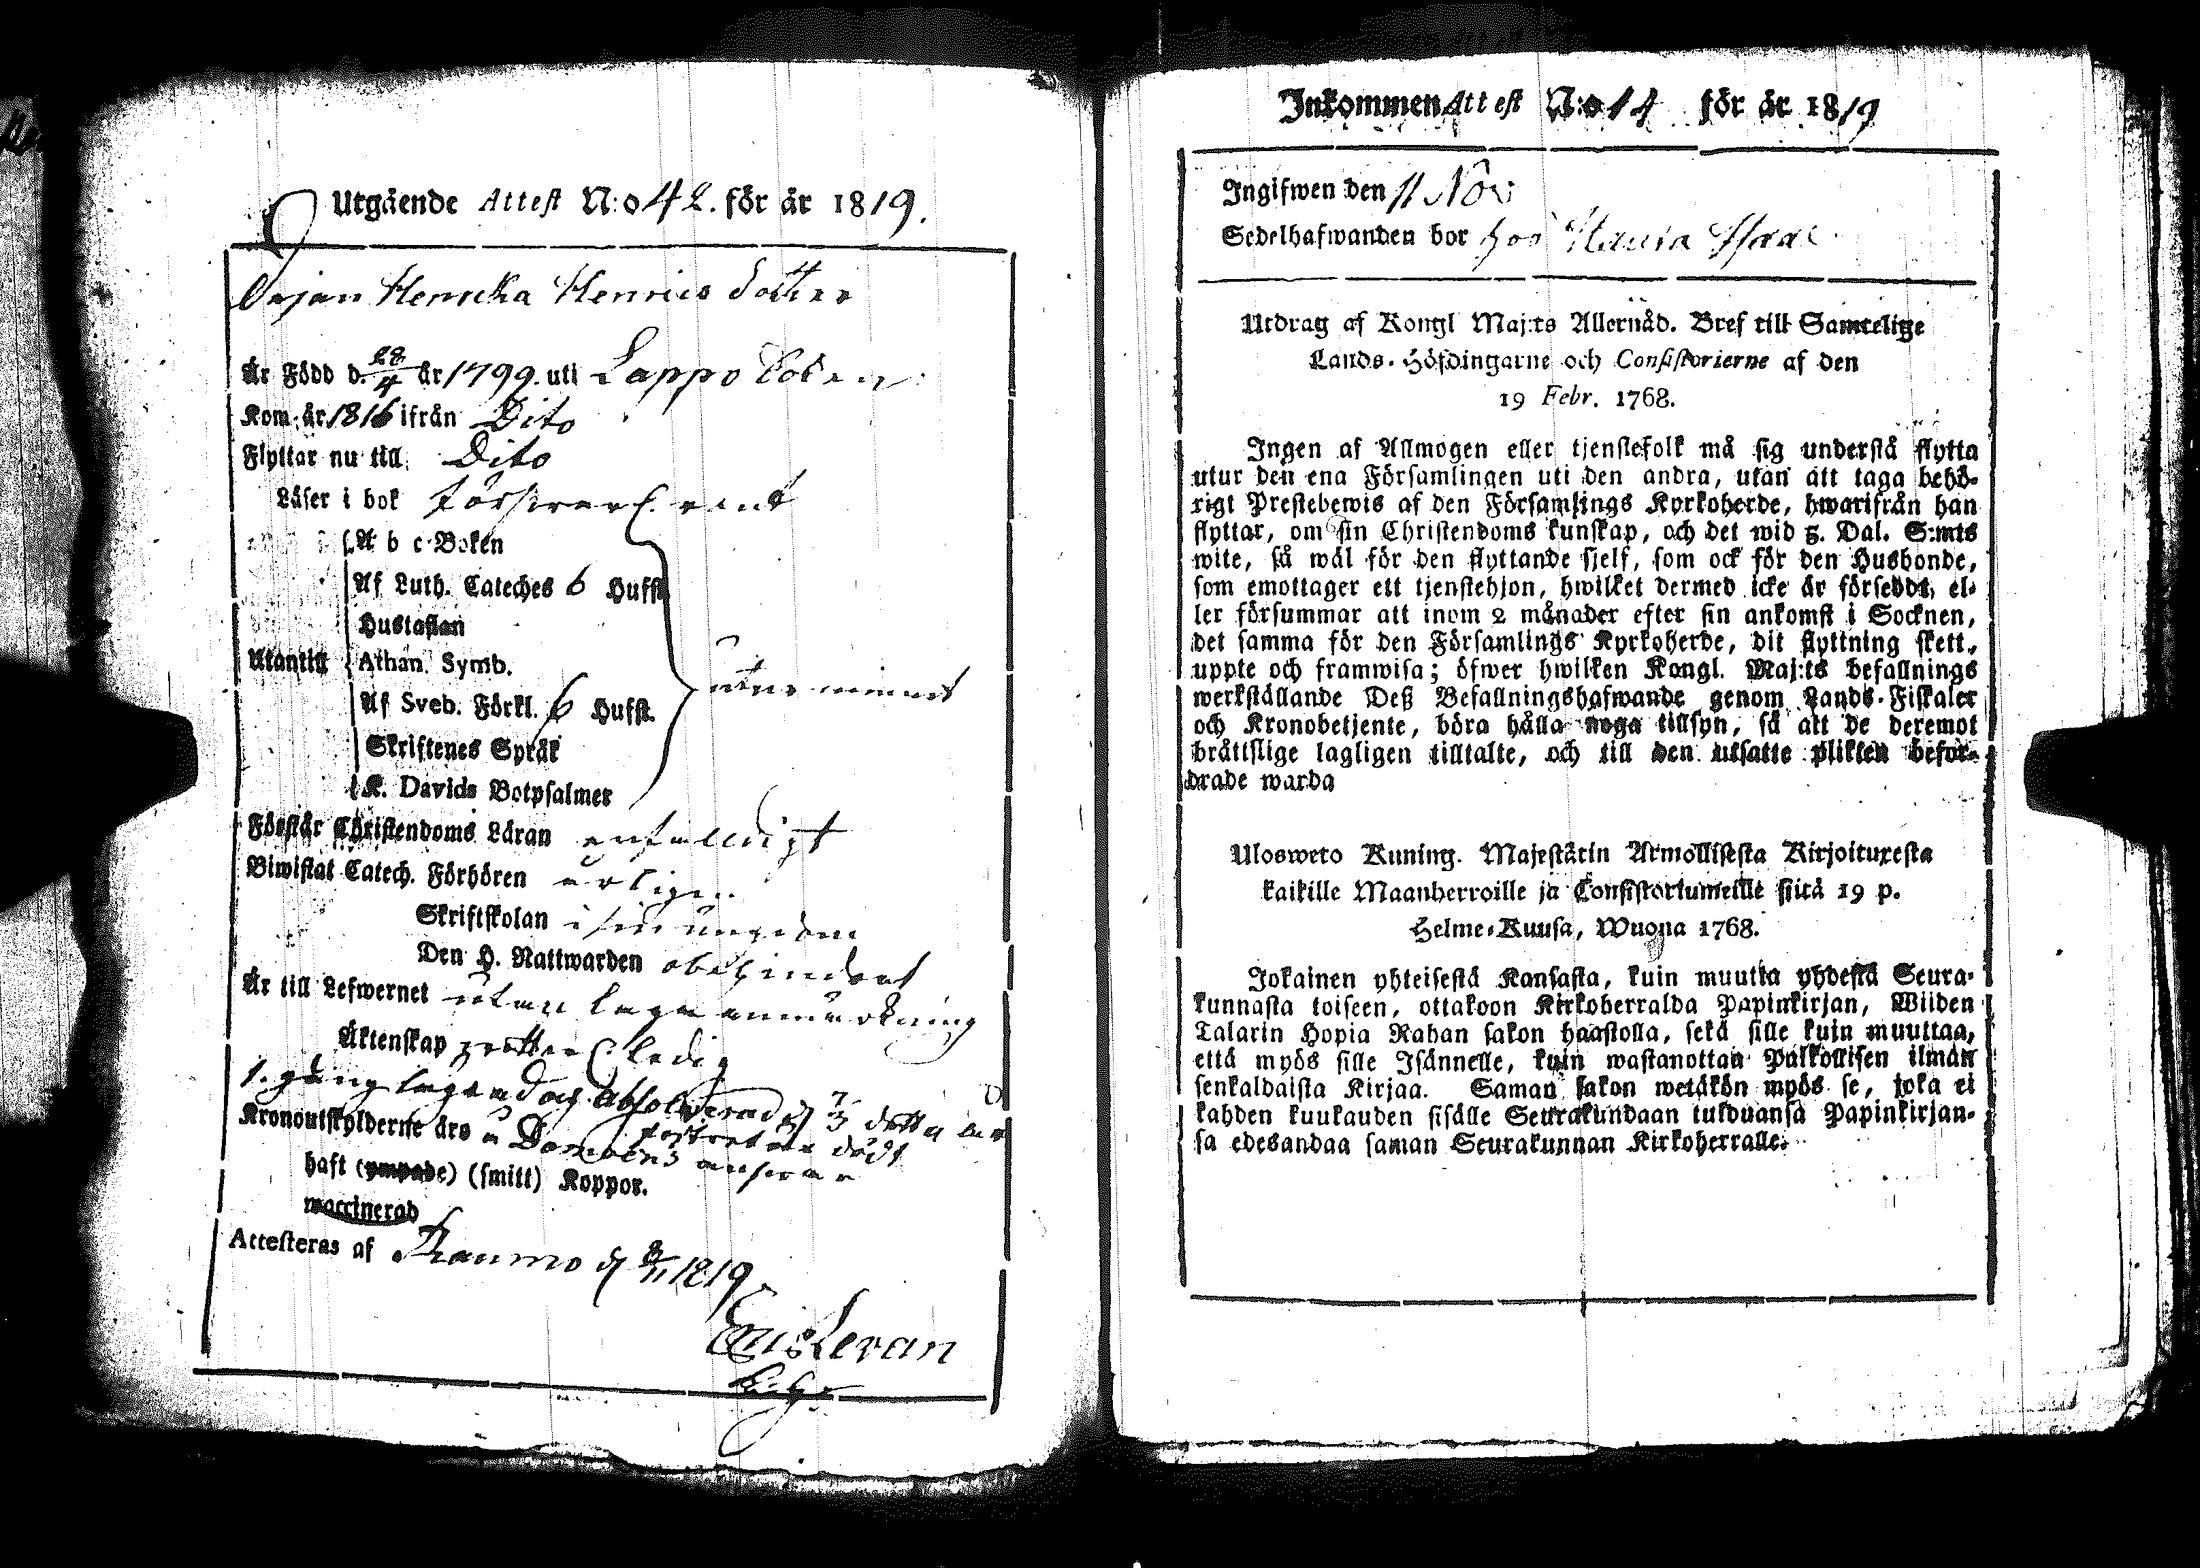 Utgående Attest N:o 42. för år 1819.
Pigan Henrika Henrics dotter
Är Född d. 28/4 år 1799. uti Lappo
Kom år 1816 ifrån Dito
Flyttar nu till Dito
Läser i bok försvarl. rent
A b c Boken
Af Luth. Cateches 6 Hufst.
Hustaflan
Utantill Athan. Symb.
Af Sveb. Förkl. 6 Hufst. utur minnet
Skriftenes Språk
K. Davids Botpsalmer
Förstår Christendoms Läran enfalldigt
Biwistat Catech. Förhören årligen
Skriftskolan i sin ungdom
Den H. Nattwarden obehindrat
Är till Lefwernet utan laga anmärkning
Äktenskap ledig
1. gång lägrad och absolverad d 7/3 detta år
fostret är dödt
Kronoutskylderne äro å Domarens ansvar
haft (ympade) (smitt) Koppor.
waccinerad
Attesteras af Raumo d 8/11 1819.
Inkommen Attest N:o 14 för år 1819
Ingifwen den 11 Nov
Sedelhafwanden bor hos
Utdrag af Kongl Maj:ts Allernåd. Bref till Samtelige
Lands-Höfdingarne och Consistorierne af den
19 Febr. 1768.
Ingen af Allmogen eller tjenstefolk må sig understå flytta
utur den ena Församlingen uti den andra, utan att taga behö-
rigt Prestebewis af den Församlings Kyrkoherde, hwarifrån han
flyttar, om sin Christendoms kunskap, och det wid 5. Dal. S:mts
wite, så wäl för den flyttande sjelf, som ock för den Husbonde,
som emottager ett tjenstehjon, hwilket dermed icke är försedt, el-
ler försummar att inom 2 månader efter sin ankomst i Socknen,
det samma för den Församlings Kyrkoherde, dit flyttning skett,
uppte och framwisa; öfwer hwilken Kongl. Maj:ts befallnings
werkställande Deß Befallningshafwande genom Lands-Fiskaler
och Kronobetjente, böra hålla noga tillsyn, så att de deremot
bråttslige lagligen tilltalte, och till den utsatte plikten befor-
drade warda
Ulosweto Kuning. Majestätin Armollisesta Kirjoituxesta
kaikille Maanherroille ja Consistoriumeille siitä 19 p.
Helme-Kuusa, Wuona 1768.
Jokainen yhteisestä Kansasta, kuin muutta yhdestä Seura-
kunnasta toiseen, ottakoon Kirkoherralda Papinkirjan, Wiiden
Talarin Hopia Rahan sakon haastolla, sekä sille kuin muuttaa,
että myös sille Isännelle, kuin wastanottaa Palkollisen ilman
senkaldaista Kirjaa. Saman sakon wetäkön myös se, joka ei
kahden kuukauden sisälle Seurakundaan tulduansa Papinkirjan-
sa edesandaa saman Seurakunnan Kirkoherralle.